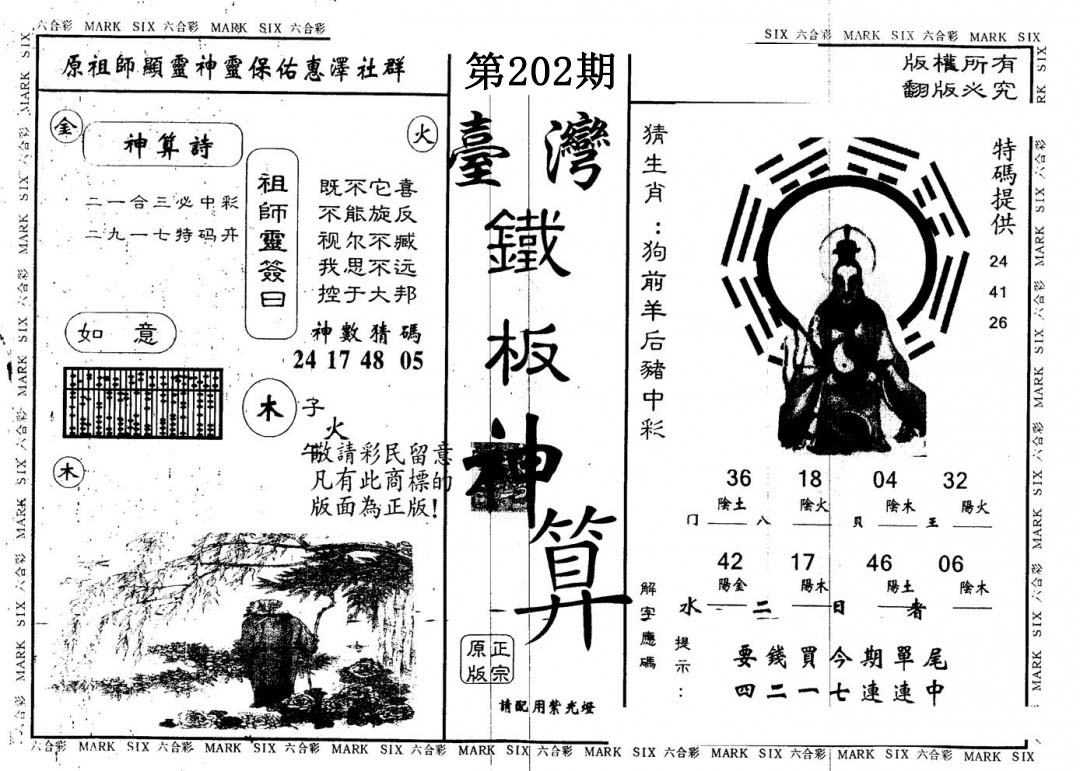 六合彩 MARK SIX 六合彩 MARK SIX 六合彩
SIX 六合彩 MARK SIX 六合彩 MARK SIX
原祖師顯靈神靈保佑惠澤社群
第202期
版權所有
翻版必究
金
神算詩
火
二一合三必中彩
二九一七特码开
祖師靈簽曰
既不它喜
不能旋反
视尔不臧
我思不远
控于大邦
神數猜碼
24 17 48 05
如意
木
子
火
午
敬請彩民留意
凡有此商標的
版面為正版!
木
臺灣
鐵
板
神
算
正宗
原版
請配用紫光燈
猜生肖:狗前羊后豬中彩
特碼提供
24
41
26
36 18 04 32
陰土 陰火 陰木 陽火
门 八 貝 王
42 17 46 06
陽金 陽木 陽土 陰木
水 二 日 者
解字應碼
提示:
要錢買今期單尾
四二一七連連中
六合彩 MARK SIX 六合彩 MARK SIX 六合彩 MARK SIX 六合彩 MARK SIX 六合彩 MARK SIX 六合彩 MARK SIX 六合彩 MARK SIX 六合彩 MARK SIX